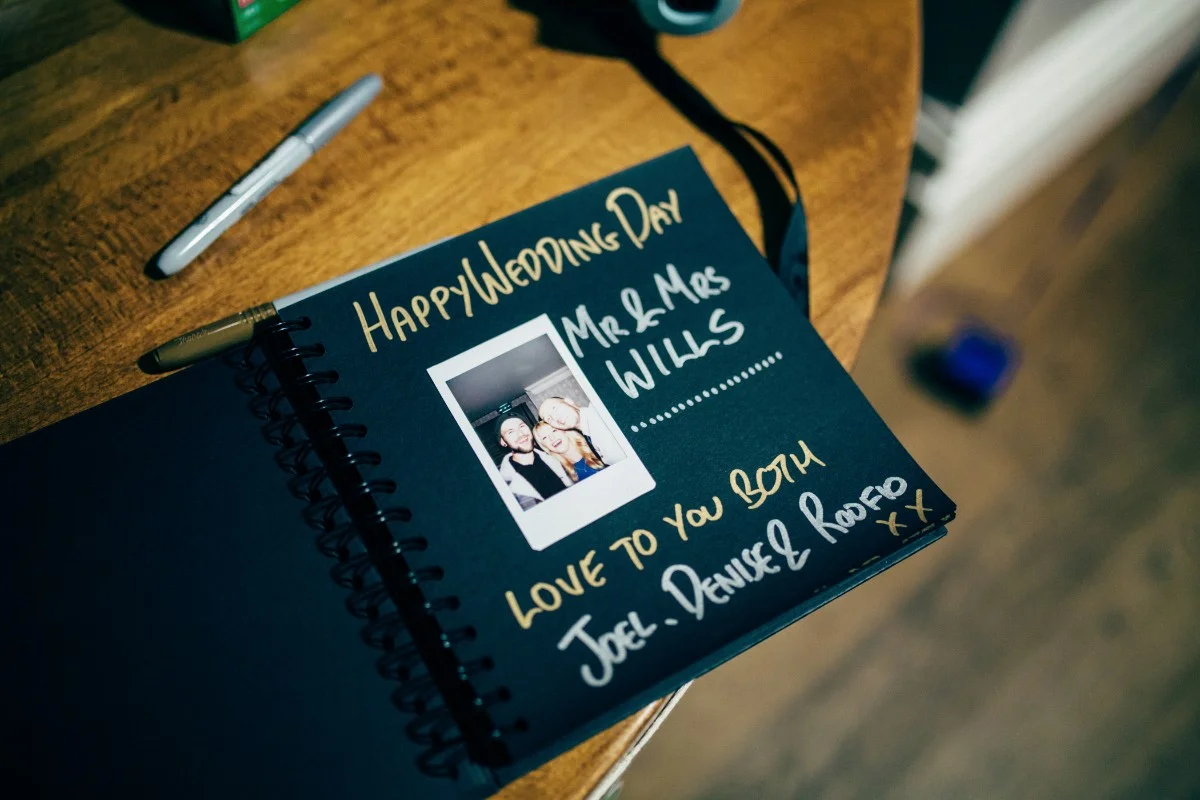 HAPPY WEDDING DAY
MR & MRS
WILLS
LOVE TO YOU BOTH
JOEL. DENISE & ROOFIO
XX